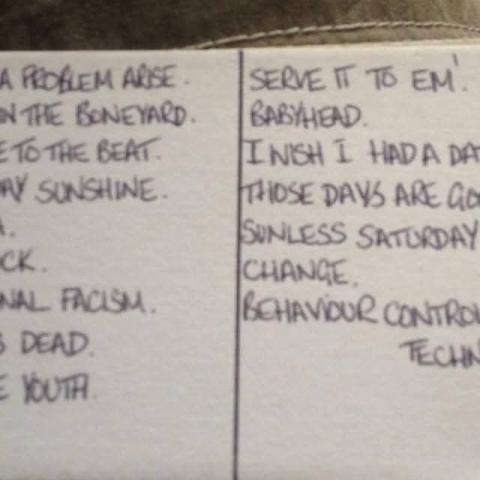 A PROBLEM ARISE.
ON THE BONEYARD.
E TO THE BEAT.
AY SUNSHINE.
A.
CK.
NAL FACISM.
S DEAD.
E YOUTH.
SERVE IT TO EM'.
BABYHEAD.
I WISH I HAD A DA
THOSE DAYS ARE GO
SUNLESS SATURDAY
CHANGE.
BEHAVIOUR CONTROL
TECHN